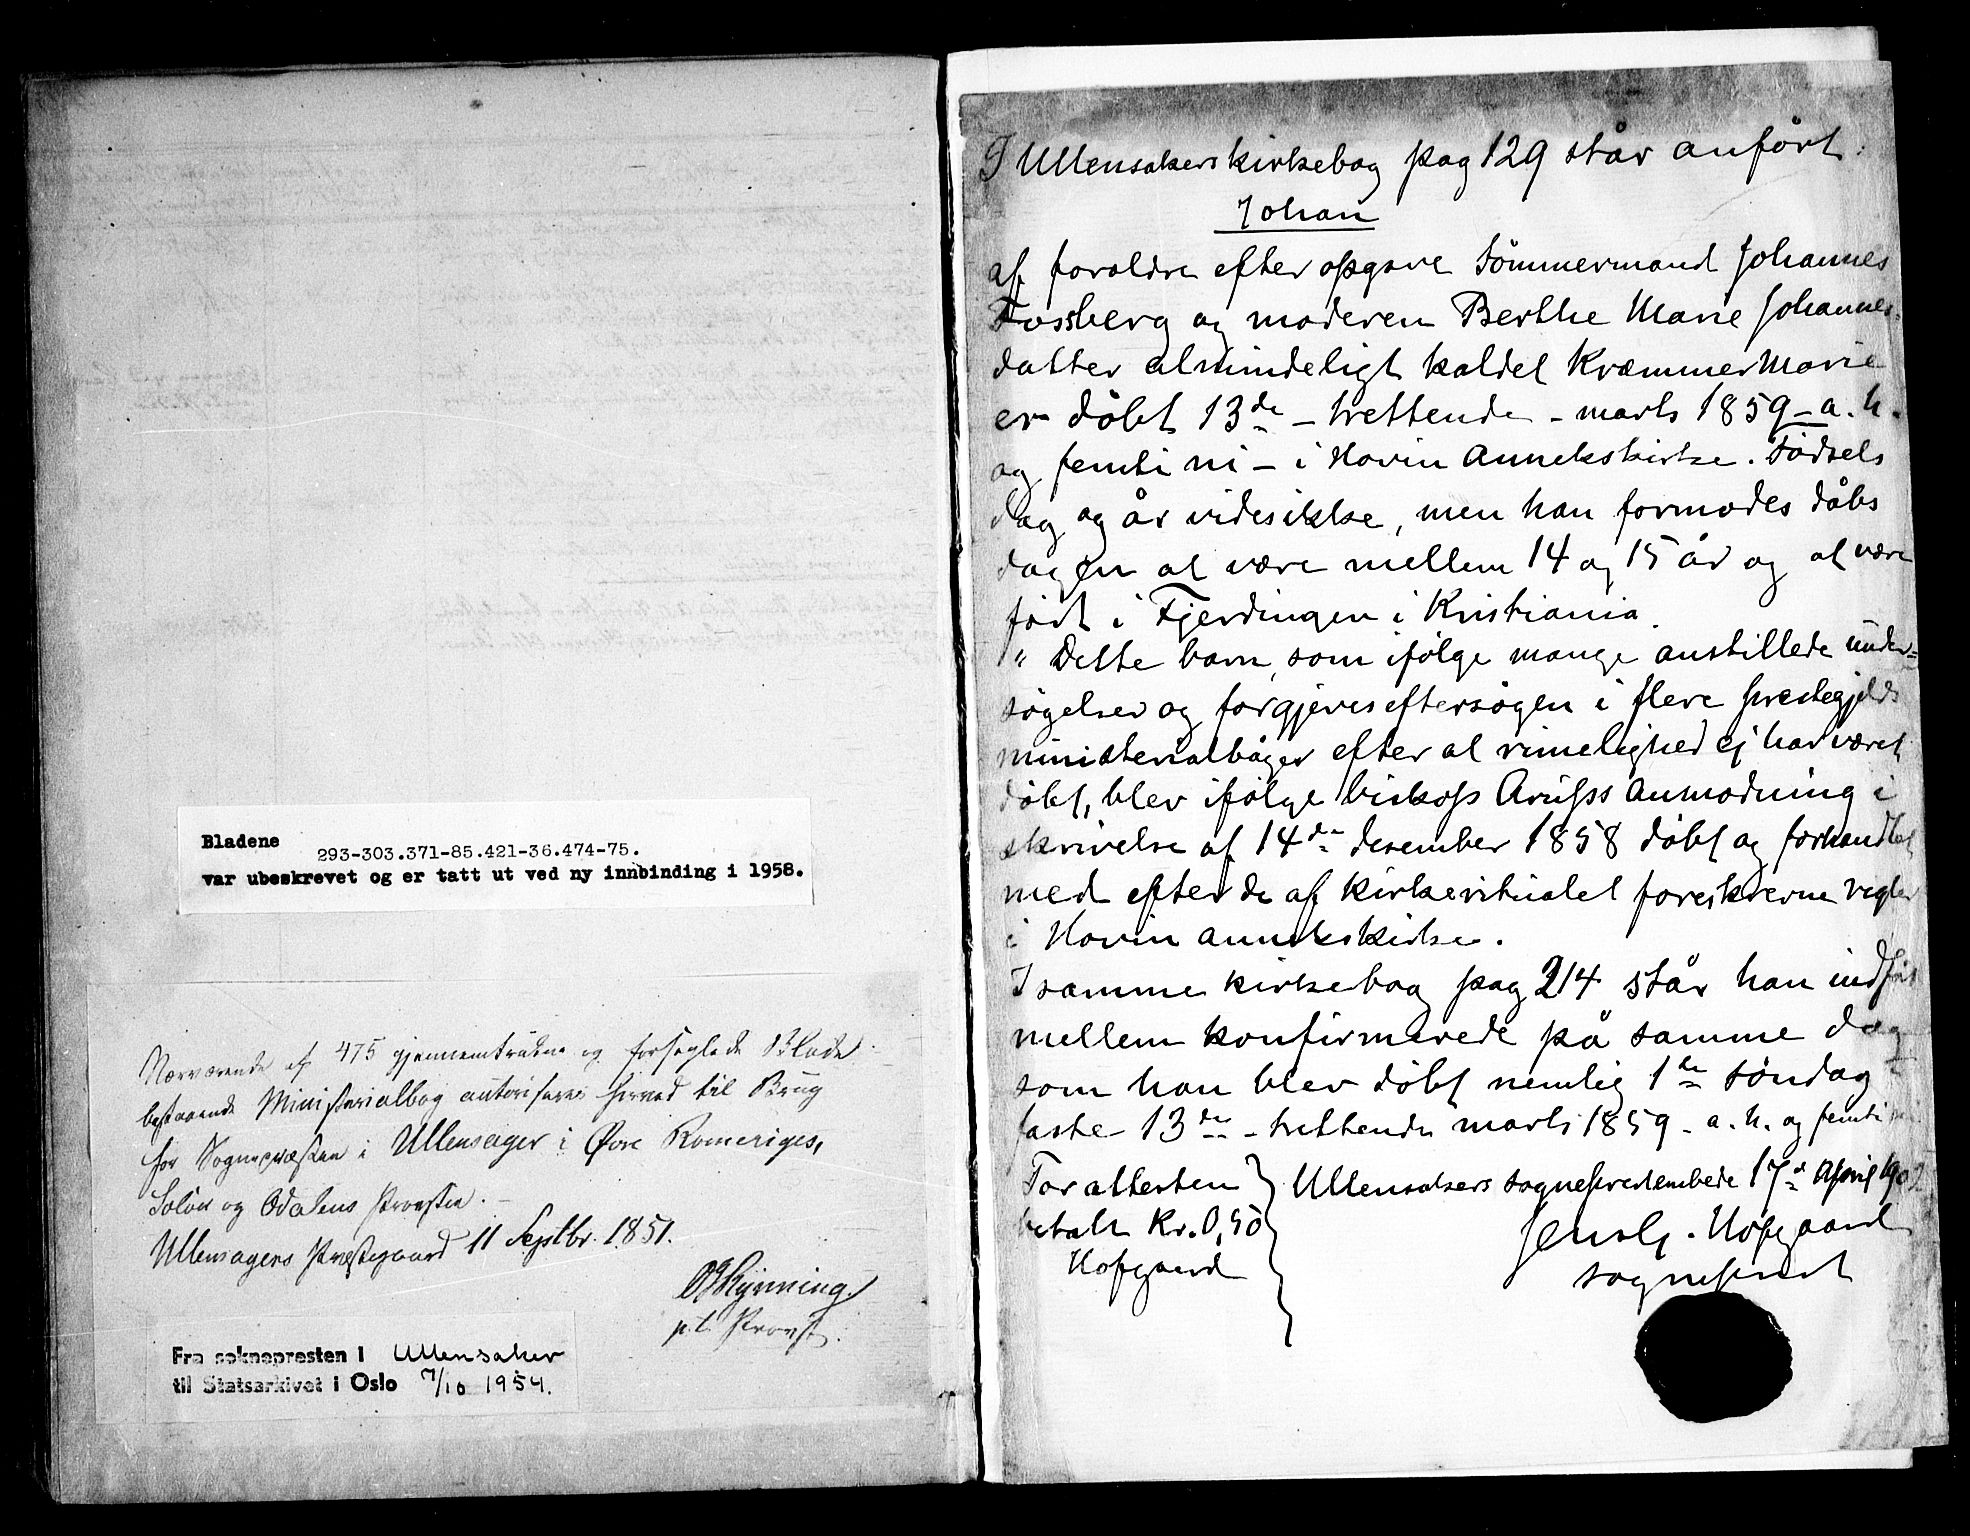 Bladene
293-303.371-85.421-36.474-75.
var ubeskrevet og er tatt ut ved ny innbinding i 1958.
Nærværende af 475 gjennemtrukne og forseglede Blade
bestaaende Ministerialbog autoriseres herved til Brug
for Sognepræsten i Ullensager i Øvre Romeriges,
Solør og Odalens Provsti.
Ullensagers Præstegaard 11 Septbr. 1851.
p.t. Provst.
Fra soknepresten i Ullensaker
til Statsarkivet i Oslo 7/10 1954.
I Ullensakers kirkebog pag 129 står anført:
Johan
af foraldre efter opgave Tömmermand Johannes
Fossberg og moderen Berthe Marie Johannes-
datter almindeligt kaldet KræmmerMarie
er döbt 13de - trettende - marts 1859 - a. h.
og femti ni - i Hovin Annekskirke. Fødsels
dag og år vides ikke, men han formodes dåbs
dagen at være mellem 14 og 15 år og at være
født i Fjerdingen i Kristiania.
" Dette barn, som ifølge mange anstillede under=
søgelser og forgjeves eftersøgen i flere prestegjelds
ministerialbøger efter al rimelighed ej har været
döbt, blev ifølge biskop Arups Anmodning i
skrivelse af 14de desember 1858 döbt og forhandlet
med efter de af kirkeritualet foreskrevne regler
i Hovin annekskirke.
I samme kirkebog pag 214 står han indført
mellem konfirmerede på samme dag
som han blev døbt nemlig 1te søndag i
faste 13de - trettende marts 1859 - a. h. og femti ni
For attesten
betalt Kr. 0,50
Hofgaard
Ullensakers sogneprestembede 17de April 1902
Jens G. Hofgaard
sogneprest